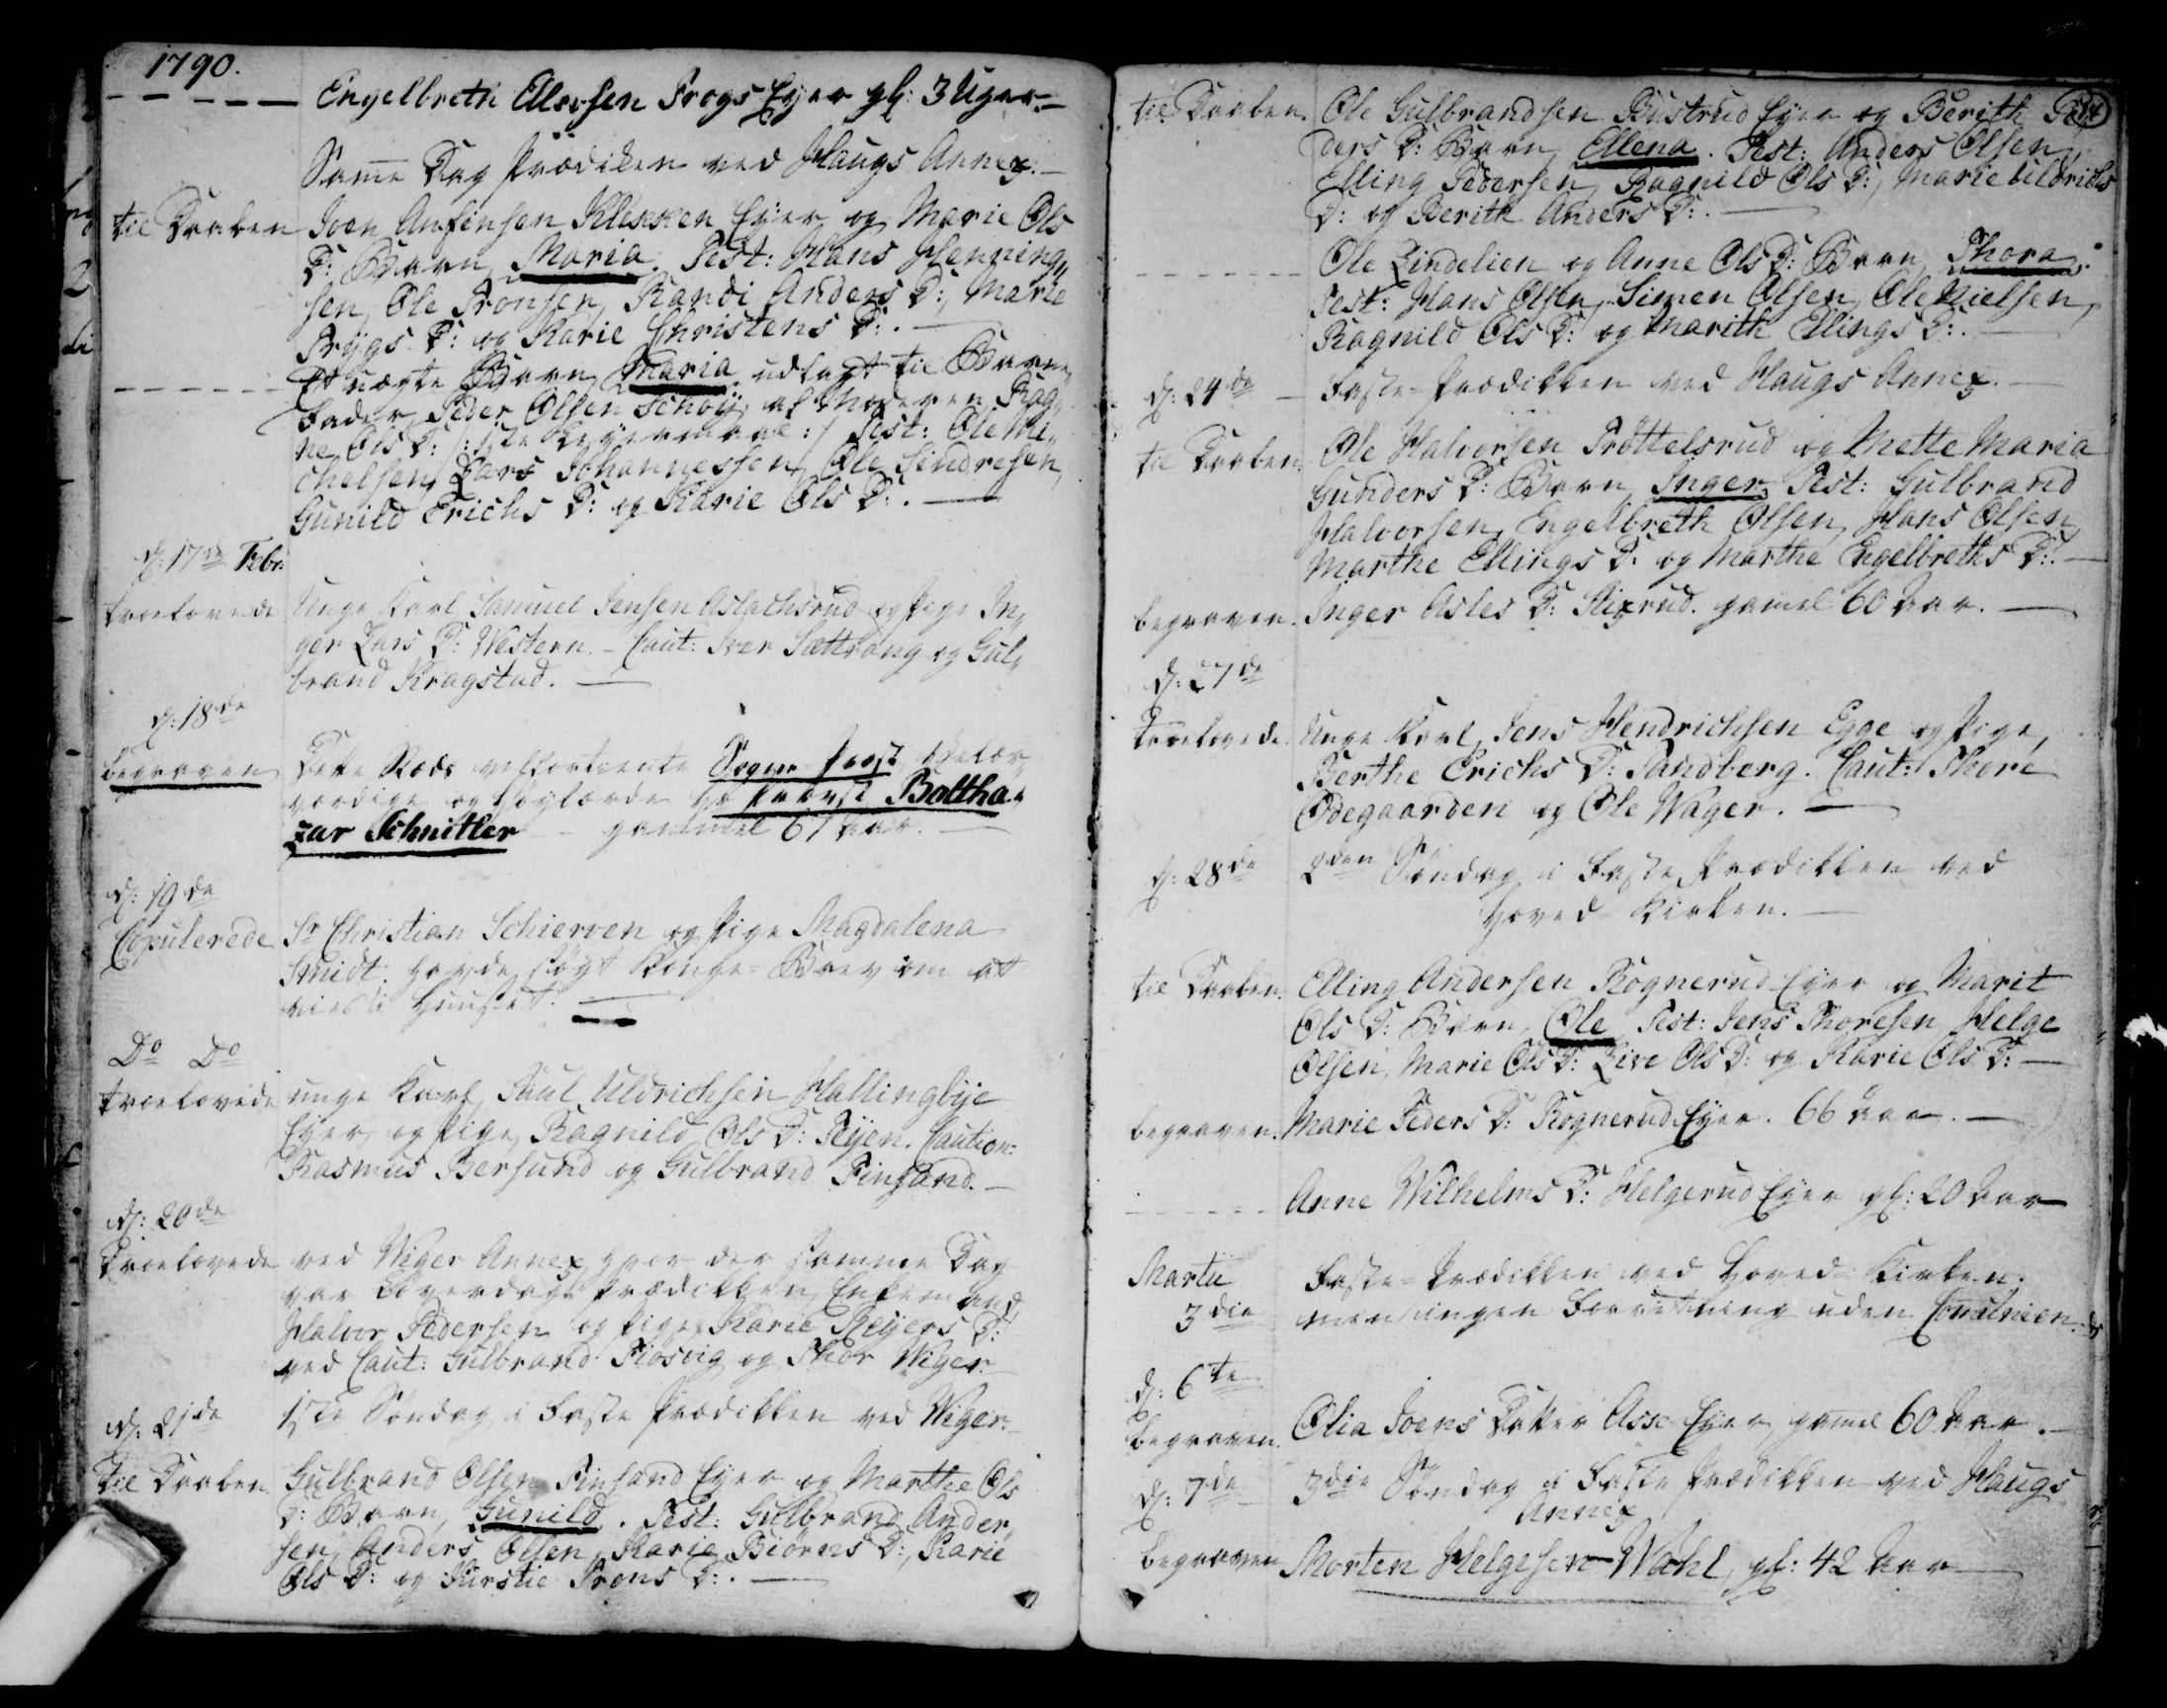 1790.
Engelbreth Elevsen Frogs Ejer gl: 3 Uger.
Samme Dag Prædiken ved Haugs Annex.
til Daaben Joen Anfinsen Klekken Ejer og Marie Ols
D: Barn, Maria. Test: Hans Henning„
sen, Ole Tronsen, Randi Anders D:, Marie
Trygs D: og Karie Christens D:.
Et uægte Barn, Maria udlagt til Barne„
Fader, Peder Olsen af Moderen Rag„
ne Ols D: /: 1ste Lejermaal :/ Test: Ole Mi„
chelsen, Lars Johannessen, Ole Sindresen,
Gunild Erichs D: og Karie Ols D:.
d: 17de Febr.
troelovede Unge Karl Samuel Jensen Aslachsrud og Pige In„
ger Lars D: Western. Caut: Iver Sættrang og Gul„
brand Kragstad.
d: 18de
begraven Dette Stæds velfortiente Sogne-Præst, Velær„
værdige og Høylærde Hr Provst Baltha„
zar Schnitler gammel 67 Aar.
d: 19de
Copulerede Sr Christian Schierven og Pige Magdalena
Smidt. havde søgt Konge-Brev om at
vies i Huuset.
Do Do
troelovede unge Karl, Paul Uldrichsen Hallingbye
Ejer, og Pige, Ragnild Ols D: Caution:
Rasmus Bersund og Gulbrand Finsand.
d: 20de
troelovede ved Wiger Annex, hvor der samme Dag
var Løverdags Prædikken, Enkemand
Halvor Pedersen og Pige, Karie Reyers D:
ved Caut: Gulbrand Fiosvig og Thor Wiger.
d: 21de 1ste Søndag i Faste Prædikken ved Wiger.
til Daaben Gulbrand Olsen Finsand Ejer og Marthe Ols
D: Barn, Gunild. Test: Gulbrand Ander„
sen, Anders Olsen, Karie Biørns D:, Karie
Ols D: og Kirstie Trons D:.
til Daaben. Ole Gulbrandsen Bustrud Ejer og Berith Pe„
ders D: Barn, Ellena. Test: Anders Olsen,
Elling Pedersen, Ragnild Ols D:, Marie Uldrichs
D: og Berith Anders D:.
Ole Lindelien og Anne Ols D: Barn, Thora.
Test: Hans Olsen, Simen Olsen, Ole Nielsen,
Ragnild Ols D: og Marith Ellings D:.
d: 24de Faste-Prædikken ved Haugs Annex.
til Daaben. Ole Halvorsen Trøttelsrud og Mette Maria
Gunders D: Barn, Inger, Test: Gulbrand
Halvorsen, Engelbreth Olsen, Hans Olsen,
Marthe Ellings D: og Marthe Engelbreths D:.
begraven. Inger Asles D: gamel 60 Aar.
d: 27de
troelovede Unge Karl, Jens Hendrichsen Egge og Pige,
Berthe Erichs D: Sandberg. Caut: Thore
Ødegaarden og Ole Wager.
d: 28de 2den Søndag i Faste Prædikken ved
Hoved-Kirken.
til Daaben. Elling Andersen Rognerud Ejer og Marit
Ols D: Barn, Ole, Test: Jens Thoresen, Helge
Olsen, Marie Ols D: Live Ols D: og Karie Ols D:
begraven. Marie Peders D: Rognerud Ejer. 66 Aar.
Anne Wilhelms D: Helgerud Ejer gl: 20 Aar
Martii Faste-Prædikken ved Hoved-Kirken.
3die men ingen Forretning uden
d: 6te
begraven. Olia Joens Datter Asse Ejer, gamel 60 Aar.
d: 7de 3die Søndag i Faste Prædikken ved Haugs
Annex
begraven Morten Helgesen Wahl, gl: 42 Aar